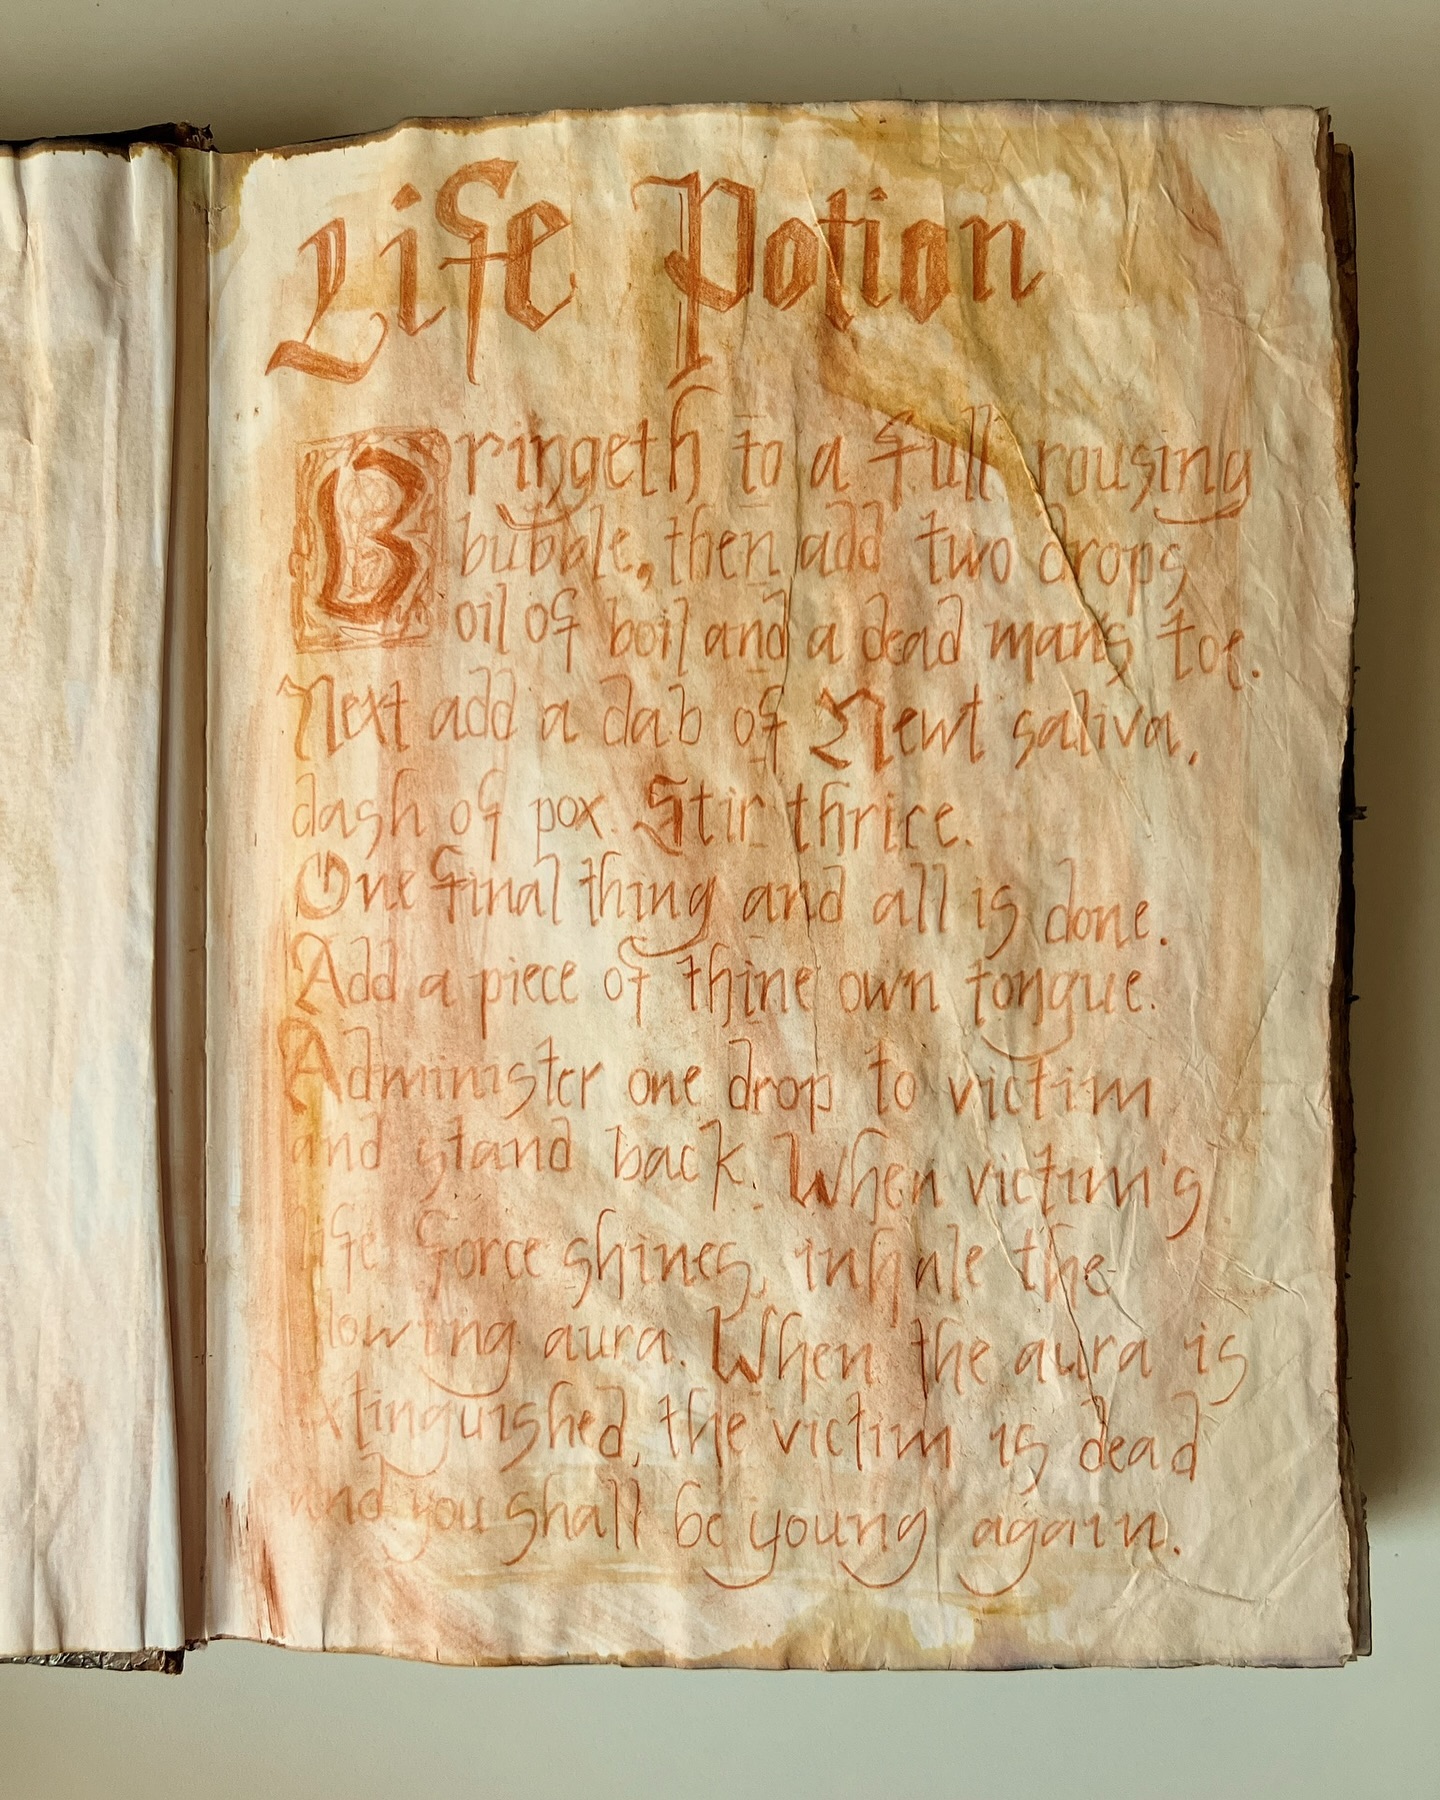 Life Potion
Bringeth to a full rousing
bubble, then add two drops
oil of boil and a dead mans toe.
Next add a dab of Newt saliva,
dash of pox. Stir thrice.
One final thing and all is done.
Add a piece of thine own tongue.
Administer one drop to victim
and stand back. When victim's
life force shines, inhale the
glowing aura. When the aura is
extinguished, the victim is dead
and you shall be young again.